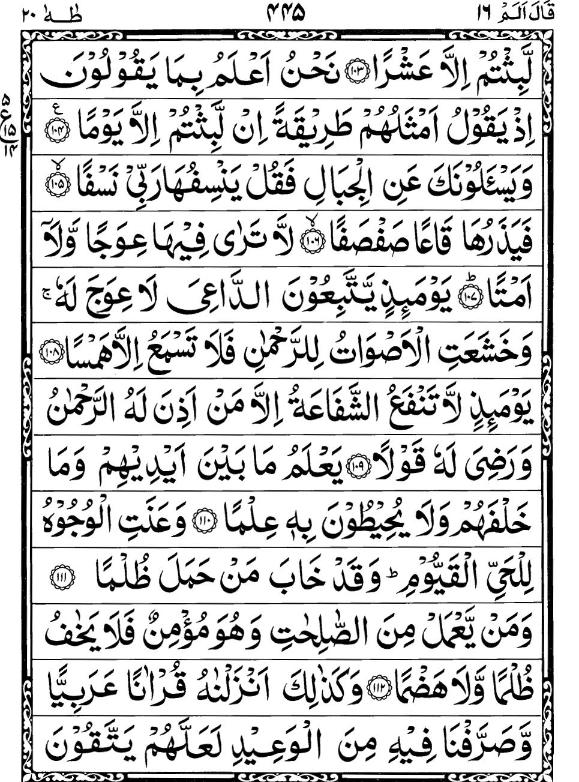 قَالَ اَلَمْ ١٦ ٤٤٥ طٰهٰ ٢٠
لَّبِثْتُمْ اِلَّا عَشْرًا ﴿١٠٣﴾ نَحْنُ اَعْلَمُ بِمَا يَقُوْلُوْنَ
اِذْ يَقُوْلُ اَمْثَلُهُمْ طَرِيْقَةً اِنْ لَّبِثْتُمْ اِلَّا يَوْمًا ﴿١٠٤﴾ ع
٥ ع ١٥ ١٤
وَيَسْـَٔلُوْنَكَ عَنِ الْجِبَالِ فَقُلْ يَنْسِفُهَا رَبِّيْ نَسْفًا ﴿١٠٥﴾ لا
فَيَذَرُهَا قَاعًا صَفْصَفًا ﴿١٠٦﴾ لا لَّا تَرٰى فِيْهَا عِوَجًا وَّلَاۤ
اَمْتًا ﴿١٠٧﴾ ط يَوْمَىِٕذٍ يَّتَّبِعُوْنَ الدَّاعِىَ لَا عِوَجَ لَهٗ ۚ
وَخَشَعَتِ الْاَصْوَاتُ لِلرَّحْمٰنِ فَلَا تَسْمَعُ اِلَّا هَمْسًا ﴿١٠٨﴾
يَوْمَىِٕذٍ لَّا تَنْفَعُ الشَّفَاعَةُ اِلَّا مَنْ اَذِنَ لَهُ الرَّحْمٰنُ
وَرَضِىَ لَهٗ قَوْلًا ﴿١٠٩﴾ يَعْلَمُ مَا بَيْنَ اَيْدِيْهِمْ وَمَا
خَلْفَهُمْ وَلَا يُحِيْطُوْنَ بِهٖ عِلْمًا ﴿١١٠﴾ وَعَنَتِ الْوُجُوْهُ
لِلْحَيِّ الْقَيُّوْمِ ؕ وَقَدْ خَابَ مَنْ حَمَلَ ظُلْمًا ﴿١١١﴾
وَمَنْ يَّعْمَلْ مِنَ الصّٰلِحٰتِ وَهُوَ مُؤْمِنٌ فَلَا يَخٰفُ
ظُلْمًا وَّلَا هَضْمًا ﴿١١٢﴾ وَكَذٰلِكَ اَنْزَلْنٰهُ قُرْاٰنًا عَرَبِيًّا
وَّصَرَّفْنَا فِيْهِ مِنَ الْوَعِيْدِ لَعَلَّهُمْ يَتَّقُوْنَ